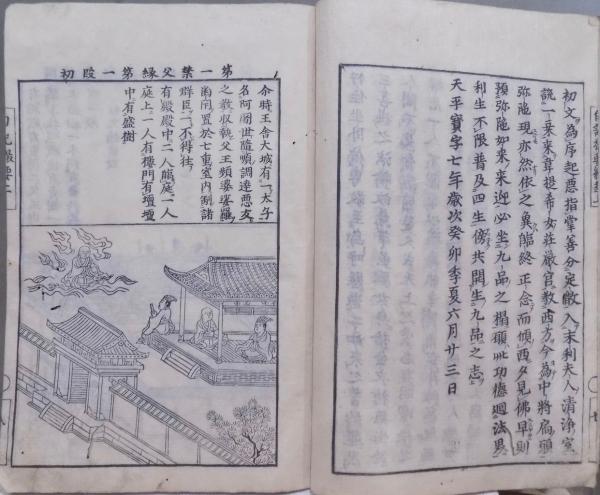 初文為序起悪指掌善分定散入末利夫人清浄室
説一乗来韋提希女荘厳官教西方今為中将局頭
弥陁現亦然依之冀臨終正念而傾西夕見佛早則
預弥陁如来来迎必坐九品之榻頭此功徳廻法界
利生不限普及四生傍共開生九品之志
天平寶字七年歳次癸卯季夏六月廿三日
第一禁父縁第一段初
尒時王舎大城有一太子
名阿闍世随順調達悪友
之教収執父王頻婆娑羅
幽閉置於七重室内制諸
群臣一不得往
有殿殿中二人龍庭一人
庭上一人有樓門有壇壇
中有盛樹